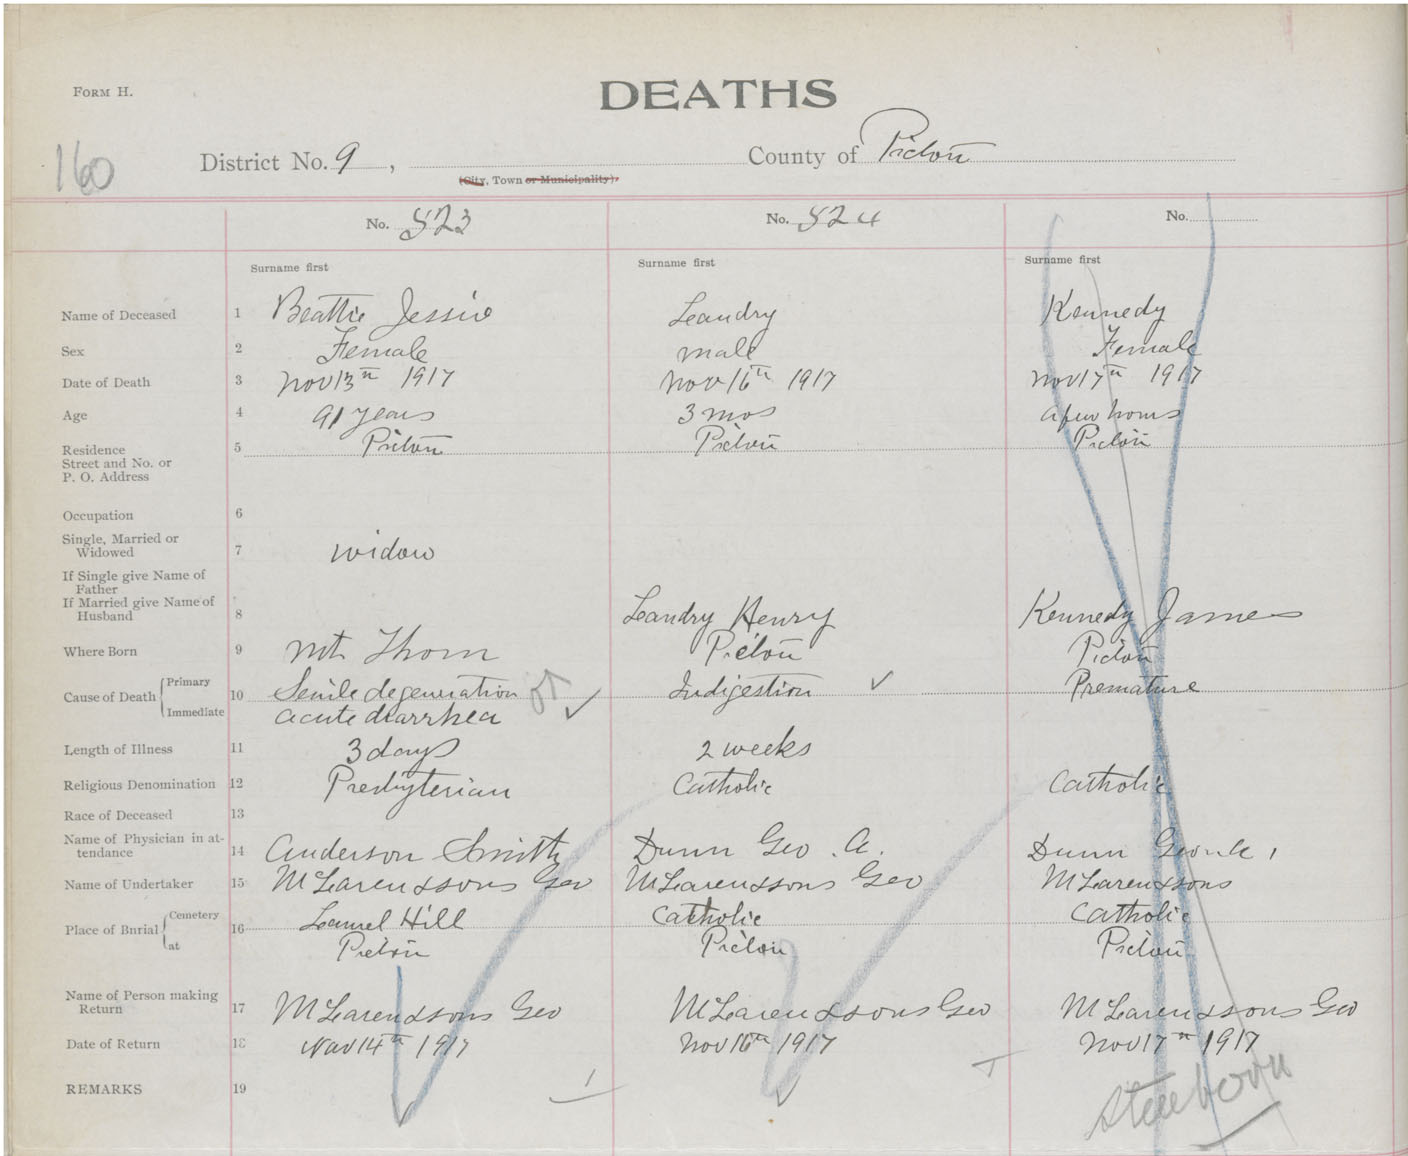 FORM H.
DEATHS
160
District No. 9, County of Pictou
(City, Town or Municipality).
No. 523 No. 524 No.
Surname first Surname first Surname first
Name of Deceased 1 Beattie Jessie Landry Kennedy
Sex 2 Female male Female
Date of Death 3 Nov 13th 1917 Nov 16th 1917 Nov 17th 1917
Age 4 91 years 3 mos a few hours
Residence 5 Pictou Pictou Pictou
Street and No. or
P. O. Address
Occupation 6
Single, Married or
Widowed 7 widow
If Single give Name of
Father
If Married give Name of
Husband 8 Landry Henry Kennedy James
Where Born 9 Mt. Thom Pictou Pictou
Cause of Death Primary 10 Senile degeneration Indigestion Premature
Immediate acute diarrhea
Length of Illness 11 3 days 2 weeks
Religious Denomination 12 Presbyterian Catholic Catholic
Race of Deceased 13
Name of Physician in at-
tendance 14 Anderson Smith Dunn Geo. A. Dunn
Name of Undertaker 15 McLaren & sons Geo McLaren & sons Geo McLaren & sons
Place of Burial Cemetery 16 Laurel Hill Catholic Catholic
at Pictou Pictou Pictou
Name of Person making
Return 17 McLaren & sons Geo McLaren & sons Geo McLaren & sons Geo
Date of Return 18 Nov 14th 1917 Nov 16th 1917 Nov 17th 1917
REMARKS 19 Stillborn